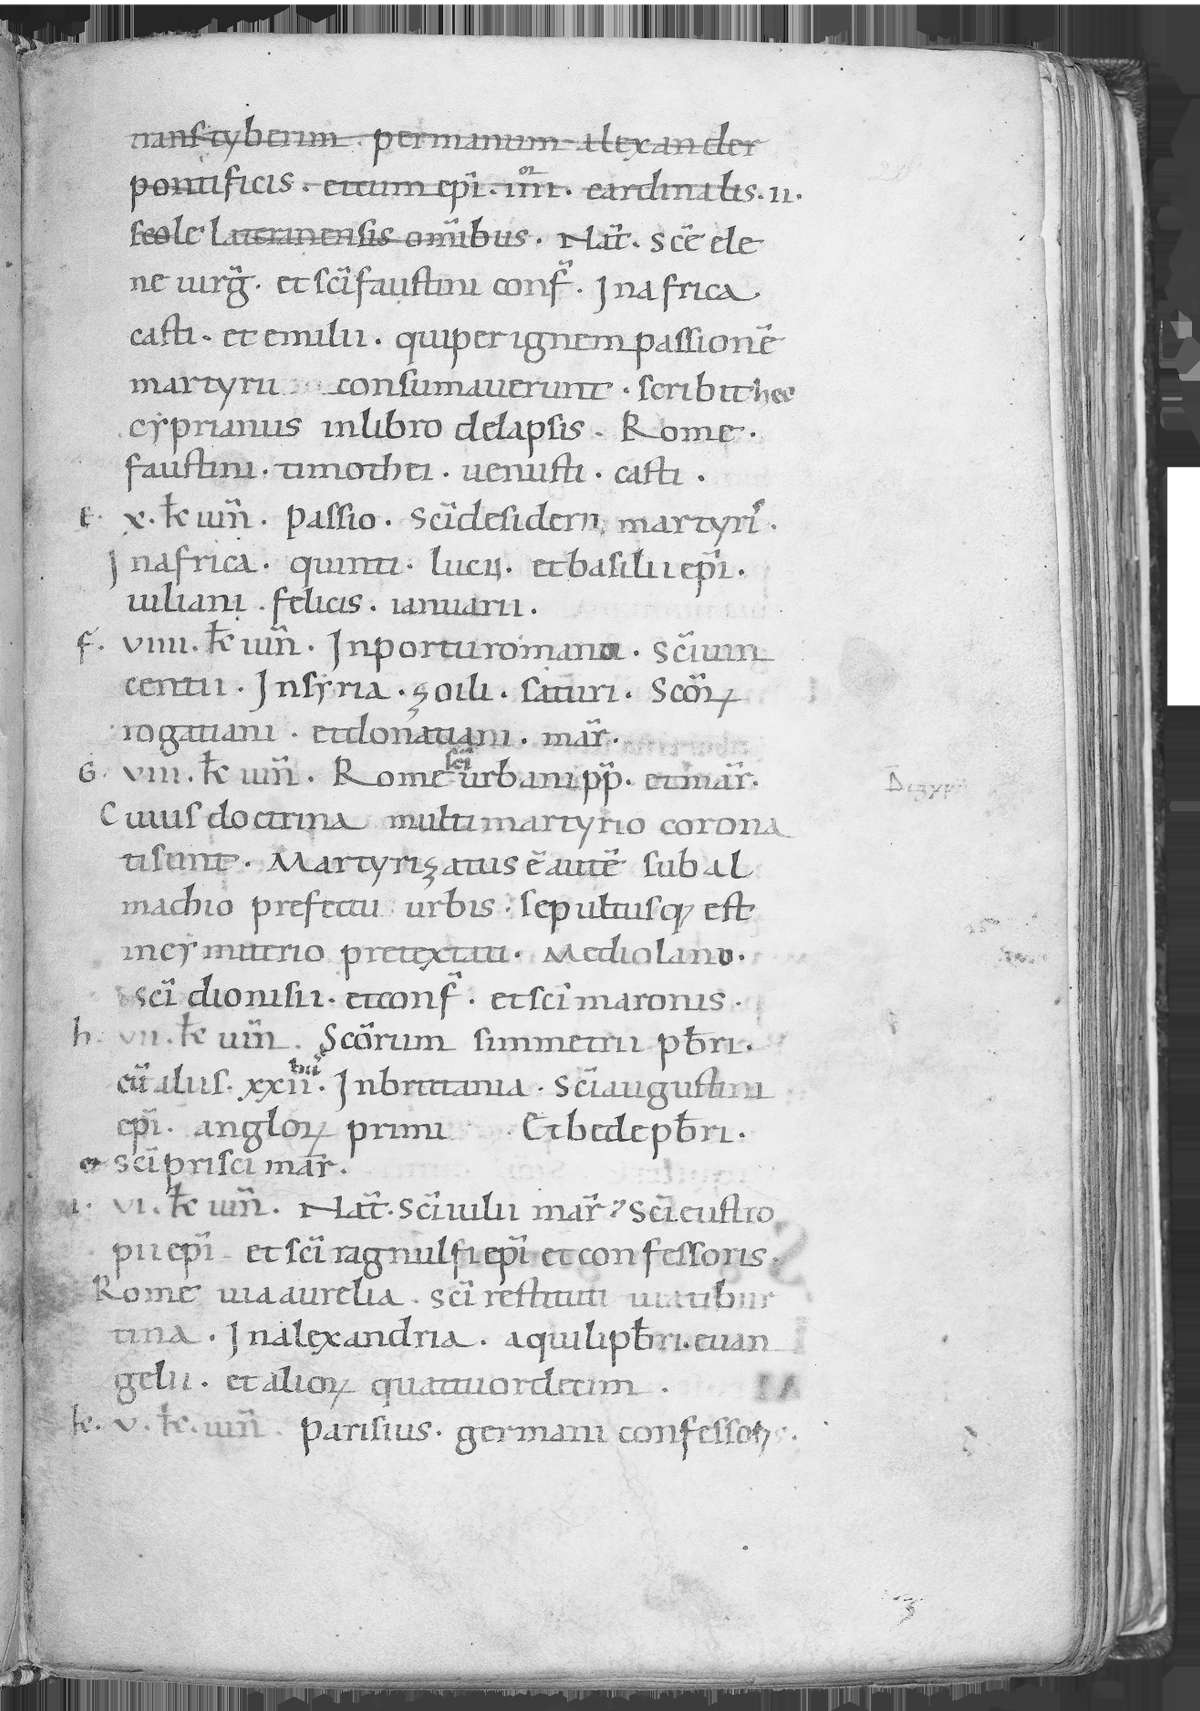 transtyberim . permanum alexander
pontificis . etcum ep̅i . iiii^or . cardinalis . ii .
scole lateranensis om̅ibus . Nat̅ . sc̅e ele
ne uirg̅ . et sc̅i faustini conf̅ . Inafrica
casti . et emilii . quiper ignem passionē
martyru consumauerunt . scribit hec
cyprianus inlibro delapsis . Rome .
faustini . timothei . uenusti . casti .
E . x . kt̅ iun̅ . Passio . Sc̅i desiderii martyri .
Inafrica . quinti . lucii . et basilii ep̅i .
iuliani . felicis . ianuarii .
F . viiii . kt̅ iun̅ . Inportu romano . Sc̅i uin
centii . Insyria . zoili . saturi . Scor̅ꝝ
rogatiani . etdonatiani . mar̅ .
G . viii . kt̅ iun̅ . Rome sc̅i urbani pp̅ . et mar̅ .
Cuius doctrina multi martyrio corona
ti sunt . Martyrizatus ē autē sub al
machio prefectu urbis . sepultusqꝫ est
incymiterio pretextati . Mediolano .
Sc̅i dionisii . etconf̅ . et sc̅i maronis .
h . vii . kt̅ iun̅ . Sco̅rum simmetrii pb̅ri .
cū aliis . xxii^bus . Inbrittania . Sc̅i augustini
ep̅i . angloꝝ primi Et bede pb̅ri .
et sc̅i prisci mar̅ .
i . vi . kt̅ iun̅ . Nat̅ . Sc̅i iulii mar̅ . Sc̅i eustro
pii ep̅i et sc̅i ragnulfi ep̅i et confessoris .
Rome uia aurelia . Sc̅i restituti uia tibur
tina . Inalexandria . aquili pb̅ri . euan
gelii . et alioꝝ quattuordecim .
k . v . kt̅ . iun̅ . Parisius . germani confessoris .